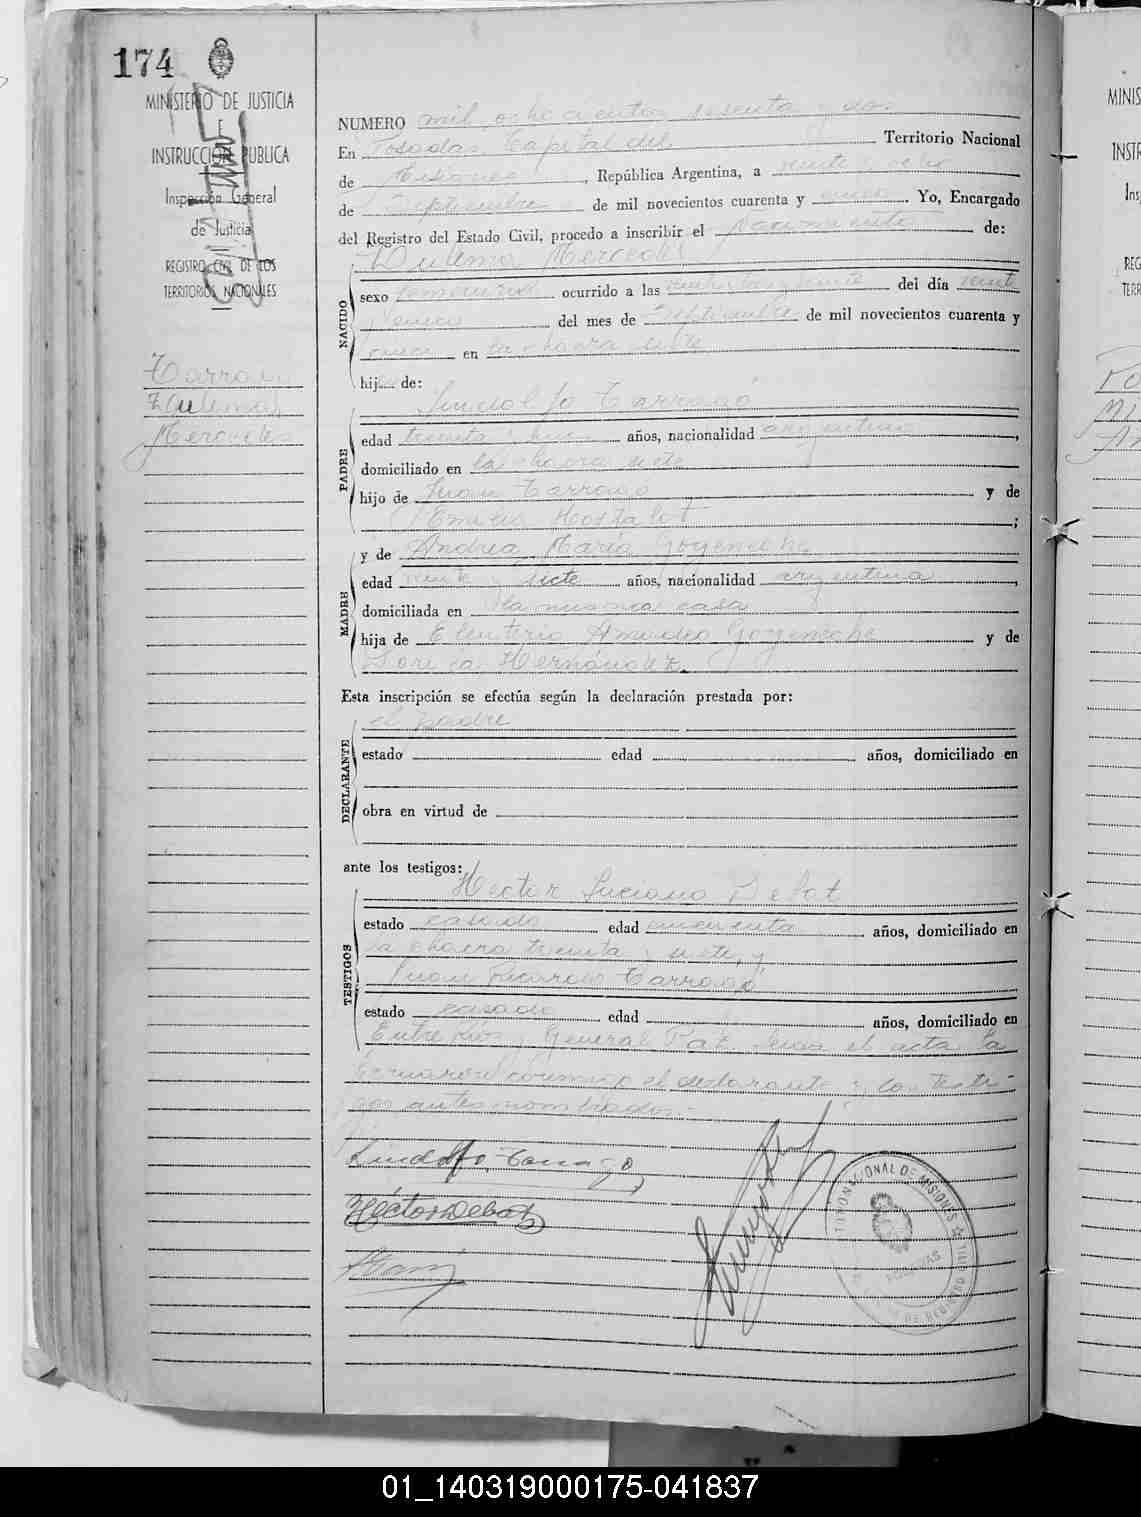 174
MINISTERIO DE JUSTICIA
INSTRUCCION PUBLICA
Inspección General
de Justicia
REGISTRO CIVIL DE LOS
TERRITORIOS NACIONALES
Tarragó
Zulema
Mercedes
NUMERO mil ochocientos sesenta y dos
En Posadas Capital del Territorio Nacional
de Misiones, República Argentina, a veinte ocho
de Septiembre de mil novecientos cuarenta y cinco Yo, Encargado
del Registro del Estado Civil, procedo a inscribir el nacimiento de:
Zulema Mercedes
NACIDO
sexo femenino ocurrido a las del día veinte
del mes de Septiembre de mil novecientos cuarenta y
cinco en la chacra siete
hija de:
Lindolfo Tarragó
PADRE
edad treinta y años, nacionalidad argentino,
domiciliado en la chacra siete
hijo de Juan Tarragó y de
Emilia Hostalot;
y de Andrea María Goyeneche
MADRE
edad veinte y siete años, nacionalidad argentina,
domiciliada en la misma casa
hija de Eleuterio Amadeo Goyeneche y de
Hernández.
Esta inscripción se efectúa según la declaración prestada por:
el padre
DECLARANTE
estado edad años, domiciliado en
obra en virtud de
ante los testigos:
Hector Luciano Debat
TESTIGOS
estado casado edad cincuenta años, domiciliado en
la chacra treinta y siete, y
Juan Ricardo Tarragó
estado casado edad años, domiciliado en
Entre Ríos y General Paz. Leida el acta la
firmaron conmigo el declarante y los testi-
gos antes nombrados.-
Lindolfo Tarragó
Héctor Debat
TERR. NACIONAL DE MISIONES
POSADAS
MINIS
INSTR
Ins
REG
TERR
01_140319000175-041837